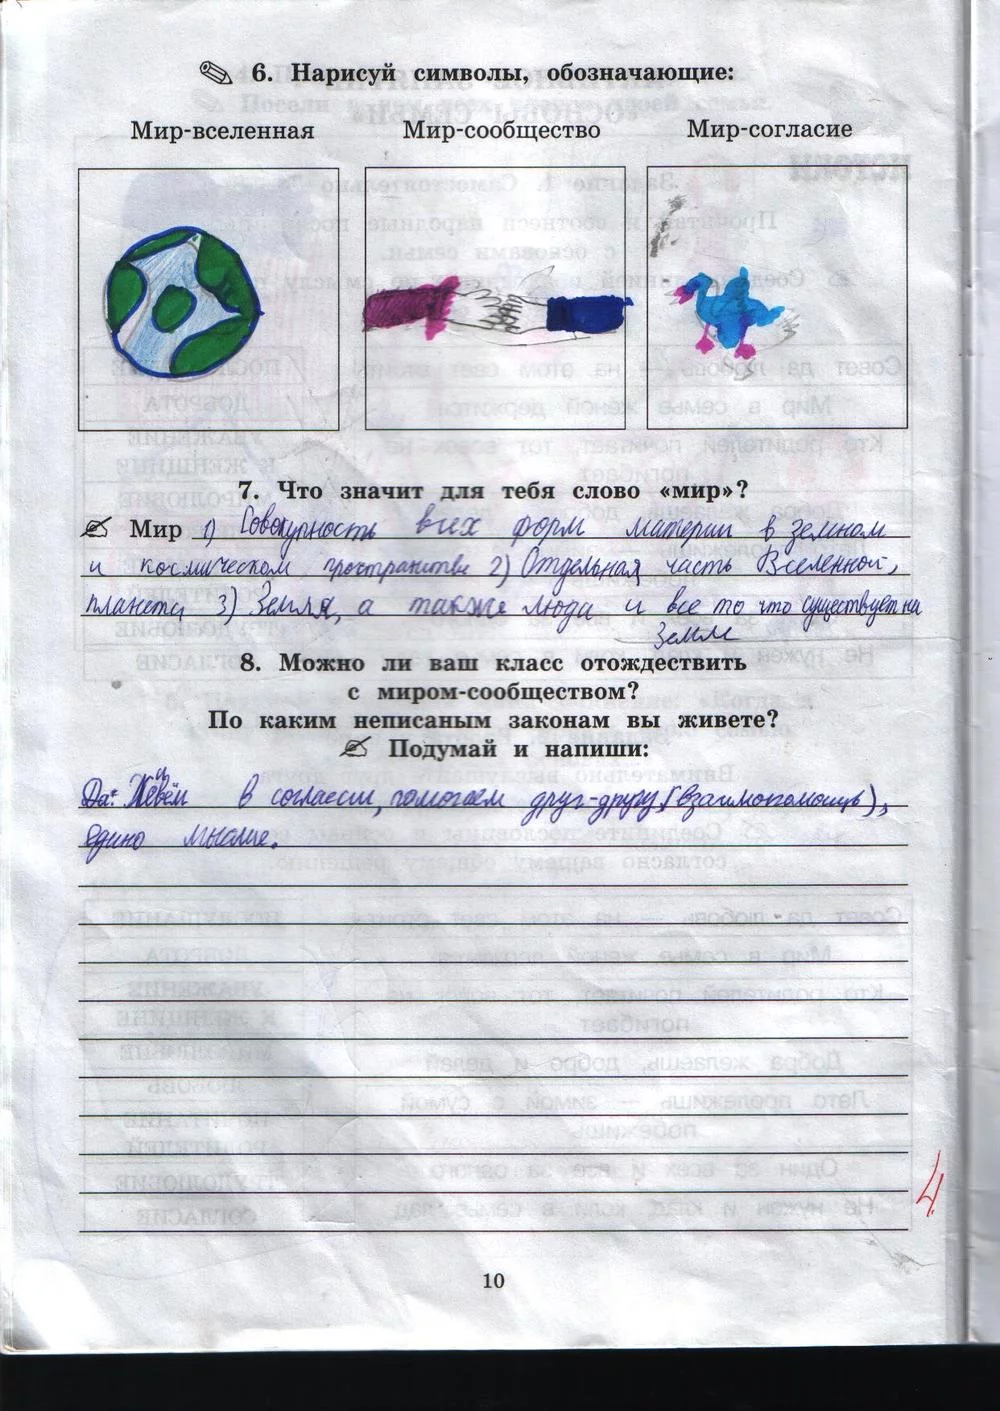 6. Нарисуй символы, обозначающие:
Мир-вселенная Мир-сообщество Мир-согласие
7. Что значит для тебя слово «мир»?
Мир 1) Совокупность всех форм материи в земном
и космическом пространстве 2) Отдельная часть Вселенной,
планета 3) Земля, а также люди и все то что существует на
Земле
8. Можно ли ваш класс отождествить
с миром-сообществом?
По каким неписаным законам вы живете?
Подумай и напиши:
Да. Живём в согласии, помогаем друг-другу (взаимопомощь),
едино мыслие.
4
10